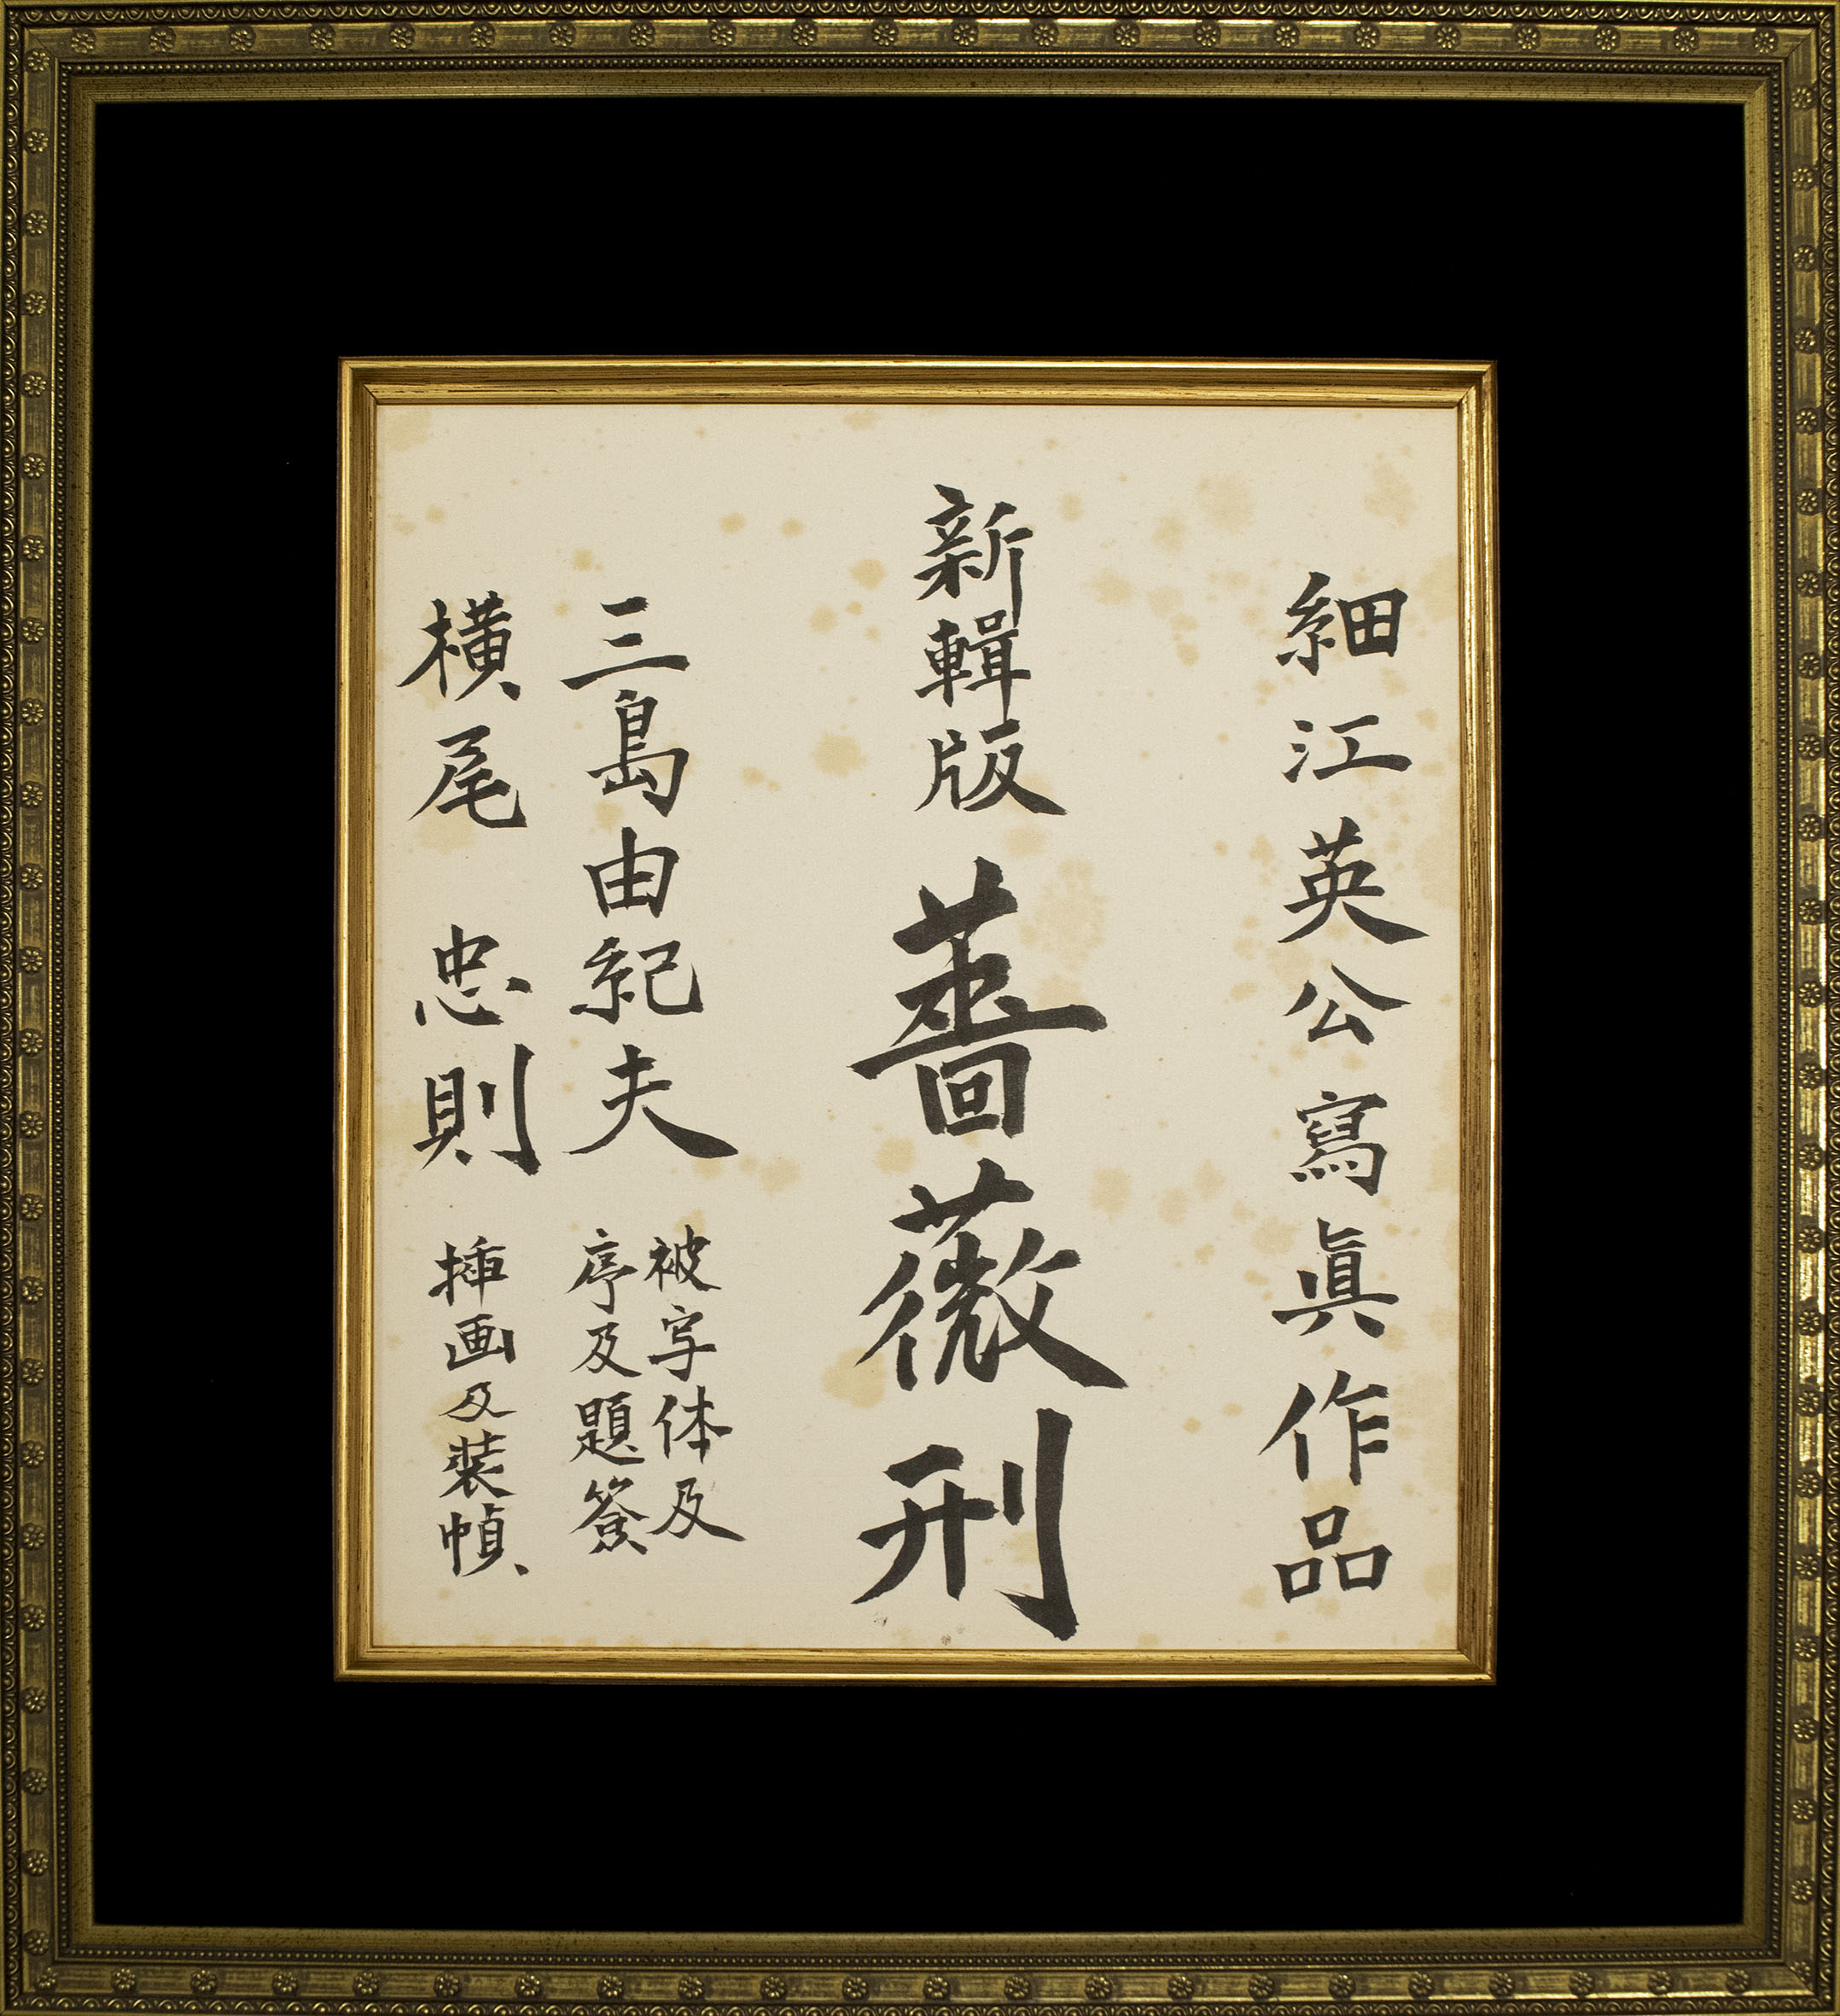 細江英公寫眞作品
新輯版 薔薇刑
三島由紀夫 被写体及
序及題簽
横尾忠則 挿画及装幀